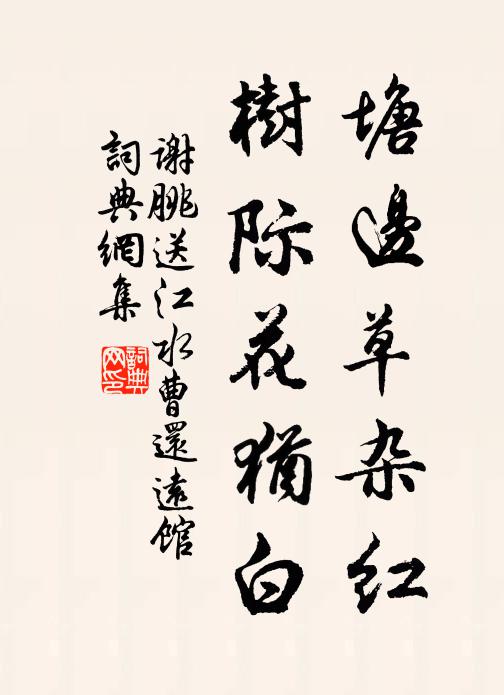 塘邊草杂红
樹际花猶白
谢朓送江水曹還遠馆
詞典網集
詞典网印